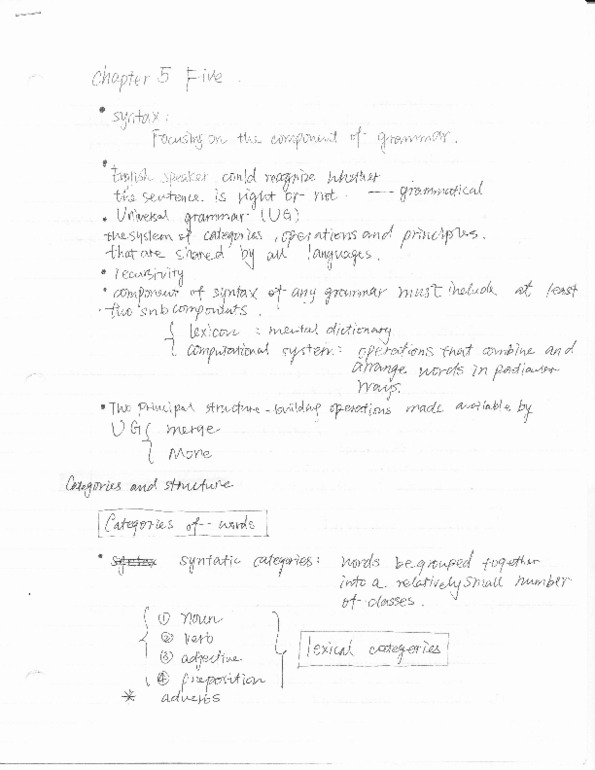 Chapter 5 Five.
• syntax:
Focusing on the component of grammar.
• English speaker could recognize whether
the sentence is right or not. ---- grammatical
• Universal grammar (UG)
the system of categories, operations and principles.
that are shared by all languages.
• recursivity
• component of syntax of any grammar must include at least
• two subcomponents.
{ lexicon : mental dictionary
computational system: operations that combine and
arrange words in particular
ways.
• Two principal structure-building operations made available by
UG { merge
Move
Categories and structure
Categories of words
• syntax syntatic categories: words be grouped together
into a relatively small number
of classes.
① noun
② verb
lexical categories
③ adjective
④ preposition
* adverbs